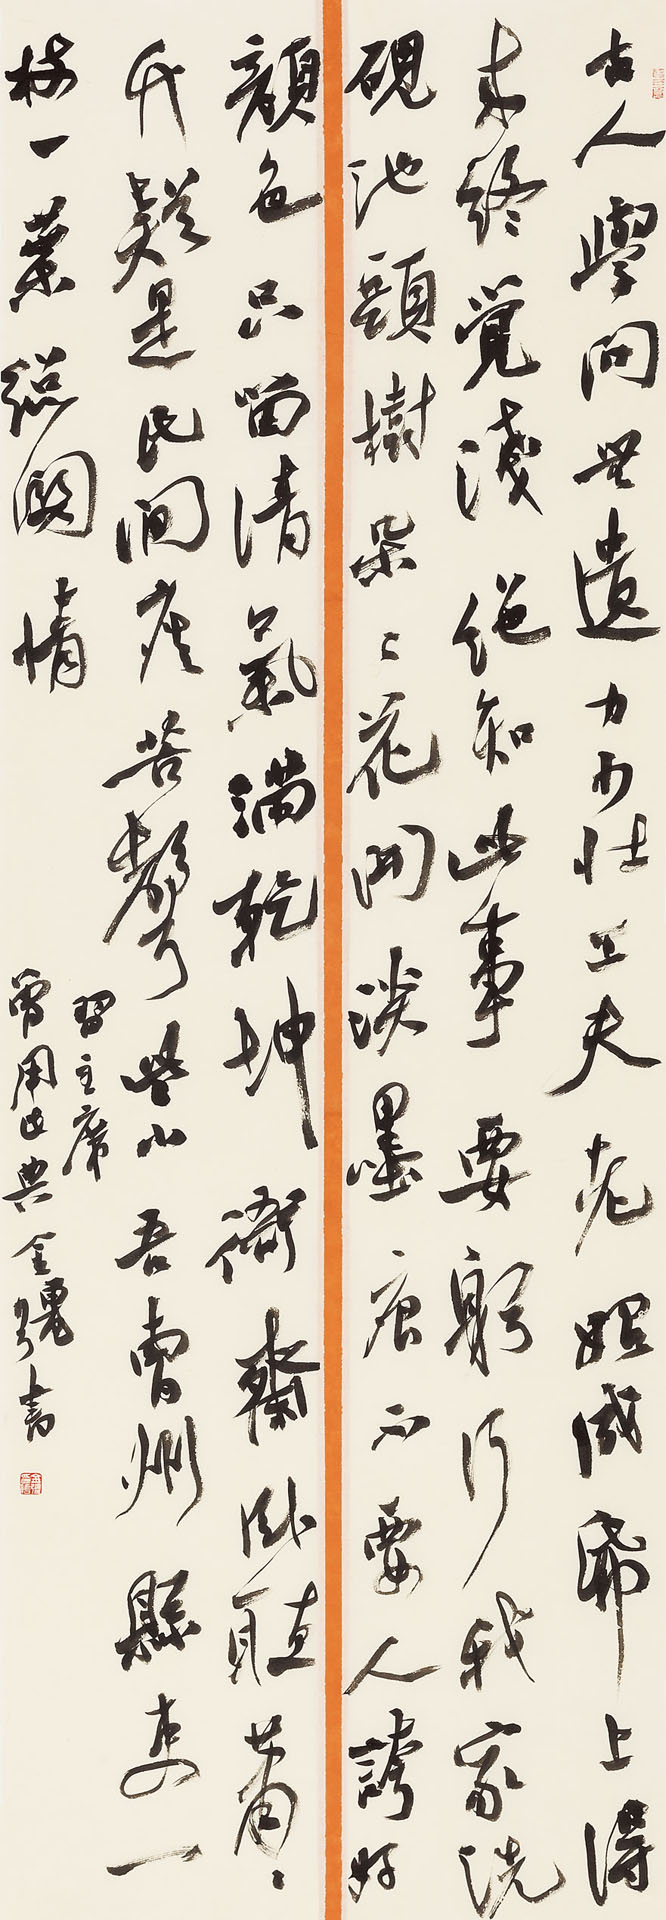 古人學問無遺力少壯工夫老始成帋上得
来終覺淺絕知此事要躬行我家洗
硯池頭樹朵〻花開淡墨痕不要人誇好
顏色只留清氣滿乾坤衙齋卧聽蕭〻
竹疑是民間疾苦聲些小吾曹州縣吏一
枝一葉總關情
習主席
曾用此典金書